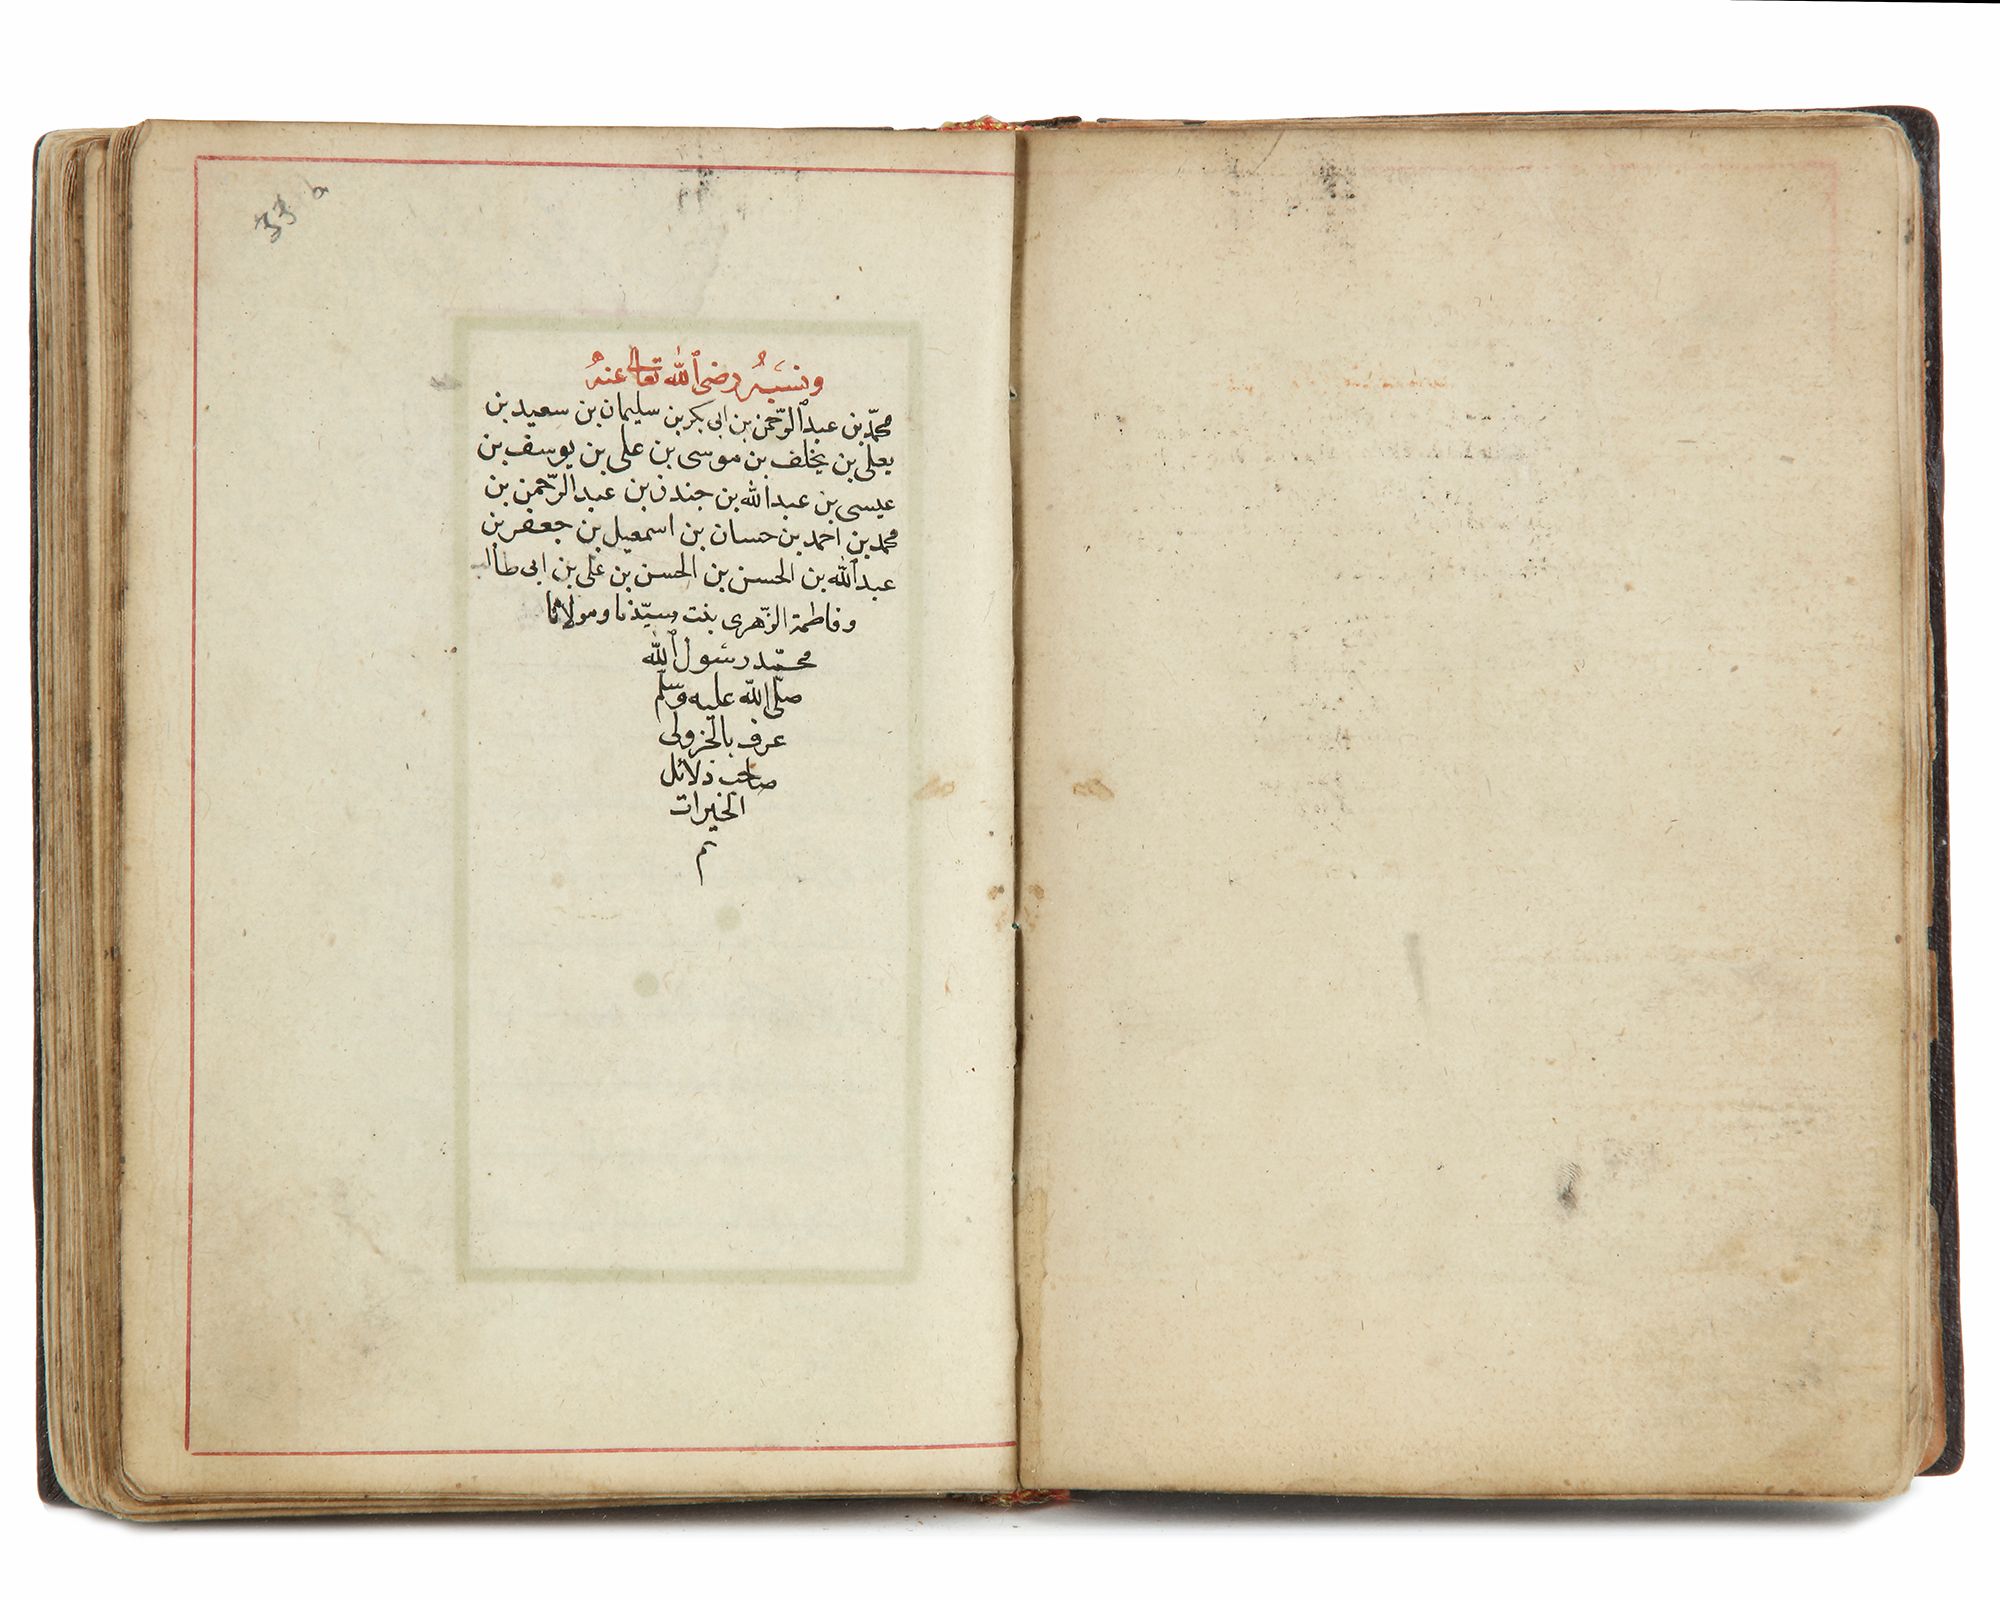 ونسبه رضى الله تعالى عنه
محمد بن عبد الرحمن بن ابى بكر بن سليمان بن سعيد بن
يعلى بن يخلف بن موسى بن على بن يوسف بن
عيسى بن عبد الله بن جندز بن عبد الرحمن بن
محمد بن احمد بن حسان بن اسمعيل بن جعفر بن
عبد الله بن الحسن بن الحسن بن على بن ابى طالب
وفاطمة الزهرى بنت سيدنا ومولانا
محمد رسول الله
صلى الله عليه وسلم
عرف بالجزولى
صاحب دلائل
الخيرات
تم
33 a